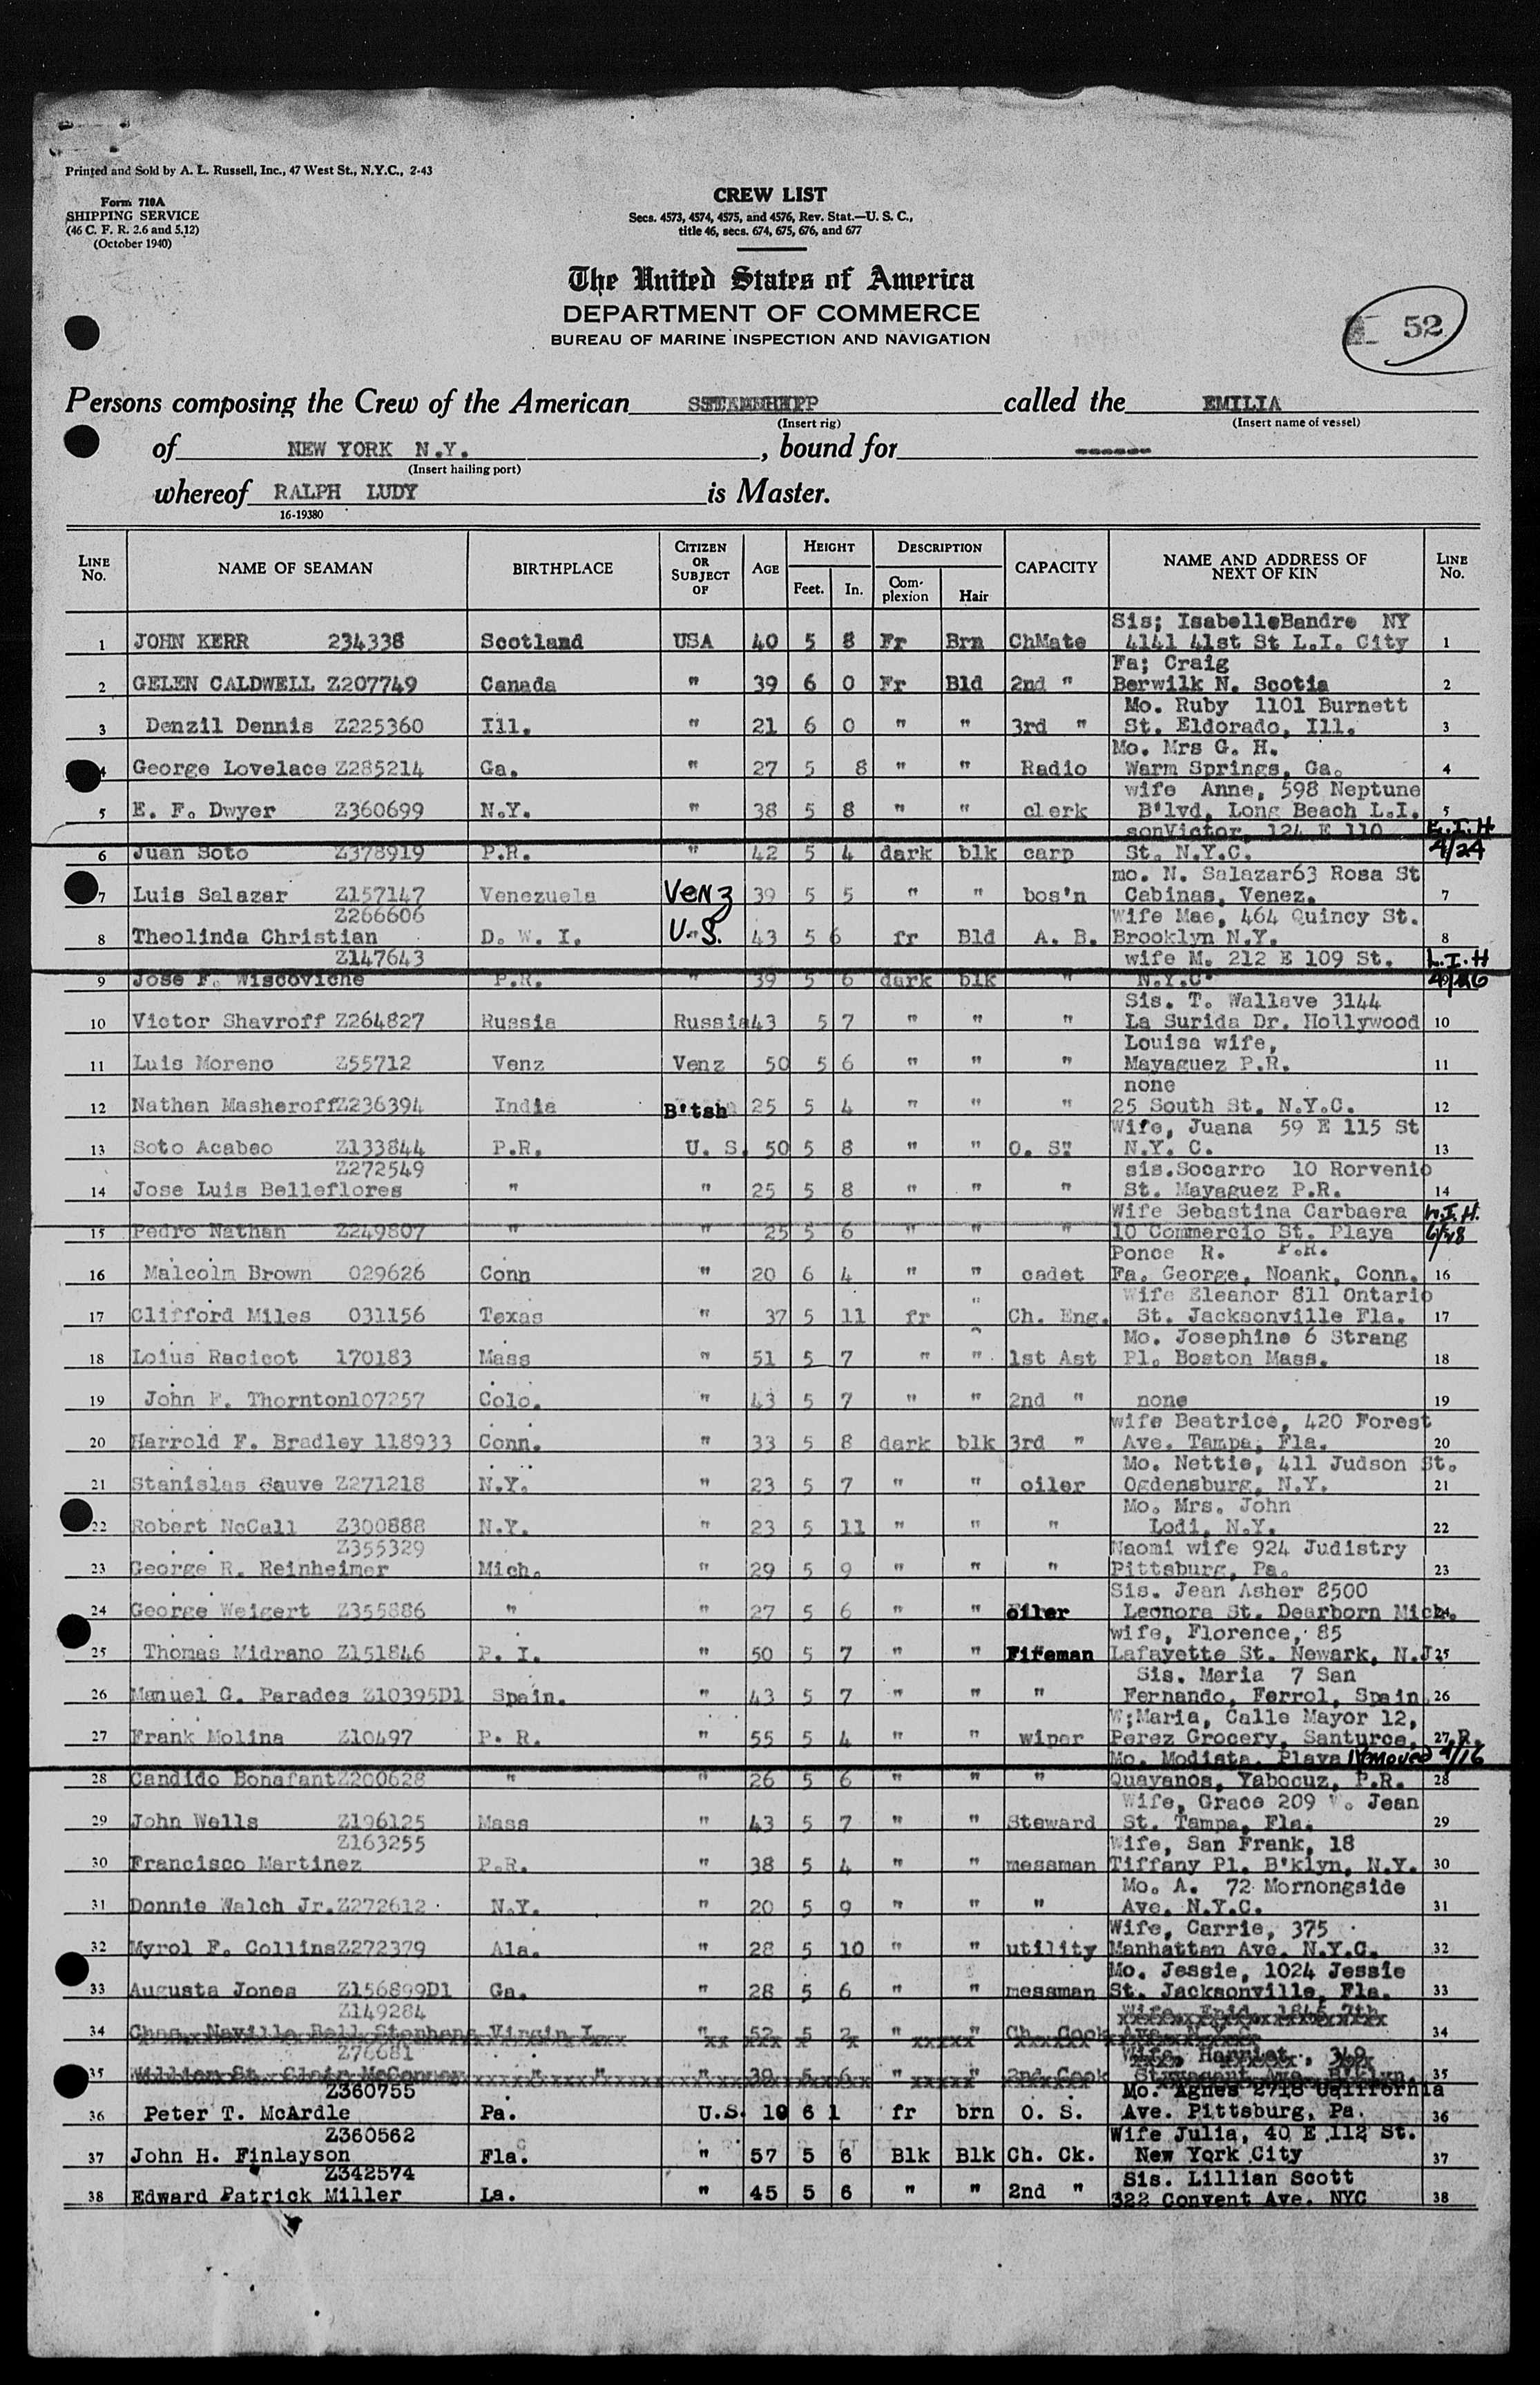 Printed and Sold by A. L. Russell, Inc., 47 West St., N.Y.C., 2-43
Form 710A
SHIPPING SERVICE
(46 C. F. R. 2.6 and 5.12)
(October 1940)
CREW LIST
Secs. 4573, 4574, 4575, and 4576, Rev. Stat.—U. S. C.,
title 46, secs. 674, 675, 676, and 677
The United States of America
DEPARTMENT OF COMMERCE
BUREAU OF MARINE INSPECTION AND NAVIGATION
52
Persons composing the Crew of the American called the EMILIA
(Insert rig) (Insert name of vessel)
of NEW YORK N.Y. , bound for ------
(Insert hailing port)
whereof RALPH LUDY is Master.
16-19380
LINE No. NAME OF SEAMAN BIRTHPLACE CITIZEN OR SUBJECT OF AGE HEIGHT Feet. In. DESCRIPTION Com-plexion Hair CAPACITY NAME AND ADDRESS OF NEXT OF KIN LINE No.
Sis; IsabelleBandre NY
1 JOHN KERR 234338 Scotland USA 40 5 8 Fr Brn ChMate 4141 41st St L.I. City 1
Fa; Craig
2 GELEN CALDWELL Z207749 Canada " 39 6 0 Fr Bld 2nd " Berwilk N. Scotia 2
Mo. Ruby 1101 Burnett
3 Denzil Dennis Z225360 Ill. " 21 6 0 " " 3rd " St. Eldorado, Ill. 3
Mo. Mrs G. H.
4 George Lovelace Z285214 Ga. " 27 5 8 " " Radio Warm Springs, Ga. 4
wife Anne, 598 Neptune
5 E. F. Dwyer Z360699 N.Y. " 38 5 8 " " clerk B'lvd, Long Beach L.I. 5
sonVictor, 124 E 110
6 Juan Soto Z378919 P.R. " 42 5 4 dark blk carp St. N.Y.C. 4/24
mo. N. Salazar63 Rosa St
7 Luis Salazar Z157147 Venezuela Venz 39 5 5 " " bos'n Cabinas, Venez. 7
Z266606 Wife Mae, 464 Quincy St.
8 Theolinda Christian D. W. I. U.S. 43 5 6 fr Bld A. B. Brooklyn N.Y. 8
Z147643 wife M. 212 E 109 St. L.I.H
9 Jose F. Wiscoviche P.R. " 39 5 6 dark blk " N.Y.C.
Sis. T. Wallave 3144
10 Victor Shavroff Z264827 Russia Russia 43 5 7 " " " La Surida Dr. Hollywood 10
Louisa wife,
11 Luis Moreno Z55712 Venz Venz 50 5 6 " " " Mayaguez P.R. 11
none
12 Nathan Masheroff Z236394 India B'tsh 25 5 4 " " " 25 South St. N.Y.C. 12
Wife, Juana 59 E 115 St
13 Soto Acabeo Z133844 P.R. U. S. 50 5 8 " " O. S. N.Y. C. 13
Z272549 sis.Socarro 10 Rorvenio
14 Jose Luis Belleflores " " 25 5 8 " " " St. Mayaguez P.R. 14
Wife Sebastina Carbaera
15 Pedro Nathan Z249807 " " 25 5 6 " " " 10 Commercio St. Playa
Ponce R. P.R.
16 Malcolm Brown 029626 Conn " 20 6 4 " " cadet Fa. George, Noank, Conn. 16
Wife Eleanor 811 Ontario
17 Clifford Miles 031156 Texas " 37 5 11 fr " Ch. Eng. St. Jacksonville Fla. 17
Mo. Josephine 6 Strang
18 Loius Racicot 170183 Mass " 51 5 7 " " 1st Ast Pl. Boston Mass. 18
19 John F. Thornton107257 Colo. " 43 5 7 " " 2nd " none 19
wife Beatrice, 420 Forest
20 Harrold F. Bradley 118933 Conn. " 33 5 8 dark blk 3rd " Ave. Tampa, Fla. 20
Mo. Nettie, 411 Judson St.
21 Stanislas Sauve Z271218 N.Y. " 23 5 7 " " oiler Ogdensburg, N.Y. 21
Mo. Mrs. John
22 Robert McCall Z300888 N.Y. " 23 5 11 " " " Lodi, N.Y. 22
Z355329 Naomi wife 924 Judistry
23 George R. Reinheimer Mich. " 29 5 9 " " " Pittsburg, Pa. 23
Sis. Jean Asher 8500
24 George Weigert Z355886 " " 27 5 6 " " oiler Leonora St. Dearborn Mich.
wife, Florence, 85
25 Thomas Midrano Z151846 P. I. " 50 5 7 " " Fireman Lafayette St. Newark, N.J 25
Sis. Maria 7 San
26 Manuel G. Parades Z10395D1 Spain. " 43 5 7 " " " Fernando, Ferrol, Spain 26
W;Maria, Calle Mayor 12,
27 Frank Molina Z10497 P. R. " 55 5 4 " " wiper Perez Grocery, Santurce, 27 P.R.
Mo. Modista. Playa removed 4/16
28 Candido Bonafant Z200628 " " 26 5 6 " " " Quayanos, Yabocuz, P.R. 28
Wife, Grace 209 W. Jean
29 John Wells Z196125 Mass " 43 5 7 " " Steward St. Tampa, Fla. 29
Z163255 Wife, San Frank, 18
30 Francisco Martinez P.R. " 38 5 4 " " messman Tiffany Pl. B'klyn, N.Y. 30
Mo. A. 72 Mornongside
31 Donnie Walch Jr.Z272612 N.Y. " 20 5 9 " " " Ave. N.Y.C. 31
Wife, Carrie, 375
32 Myrol F. Collins Z272379 Ala. " 28 5 10 " " utility Manhattan Ave. N.Y.C. 32
Mo. Jessie, 1024 Jessie
33 Augusta Jones Z156899D1 Ga. " 28 5 6 " " messman St. Jacksonville, Fla. 33
Z149284 Wife, Enid, 1845 7th
34 Chas. Naville Bell Stephens Virgin I " 52 5 2 " " Ch. Cook 34
Z76681 Wife, Harriet, 349
35 William St. Clair McConney " " " 39 5 6 " " 2nd Cook Stuyvesant Ave. B'klyn 35
Z360755 Mo. Agnes 2718 California
36 Peter T. McArdle Pa. U.S. 19 6 1 fr brn O. S. Ave. Pittsburg, Pa. 36
Z360562 Wife Julia, 40 E 112 St.
37 John H. Finlayson Fla. " 57 5 6 Blk Blk Ch. Ck. New York City 37
Z342574 Sis. Lillian Scott
38 Edward Patrick Miller La. " 45 5 6 " " 2nd " 322 Convent Ave. NYC 38